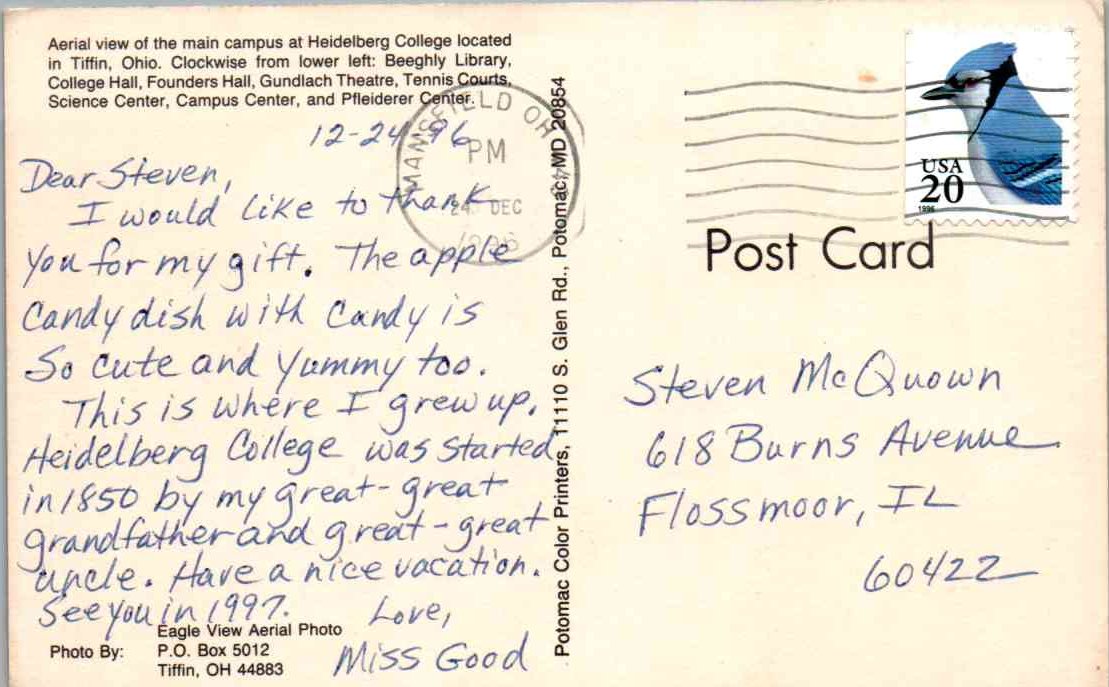 Aerial view of the main campus at Heidelberg College located
in Tiffin, Ohio. Clockwise from lower left: Beeghly Library,
College Hall, Founders Hall, Gundlach Theatre, Tennis Courts,
Science Center, Campus Center, and Pfleiderer Center.
12-24-96
Dear Steven,
I would like to thank
you for my gift. The apple
candy dish with candy is
so cute and yummy too.
This is where I grew up.
Heidelberg College was started
in 1850 by my great-great
grandfather and great-great
uncle. Have a nice vacation.
See you in 1997.
Love,
Miss Good
Photo By:
Eagle View Aerial Photo
P.O. Box 5012
Tiffin, OH 44883
MANSFIELD OH
PM
24 DEC
1996
Potomac Color Printers, 11110 S. Glen Rd., Potomac, MD 20854
USA
20
1996
Post Card
Steven McQuown
618 Burns Avenue
Flossmoor, IL
60422